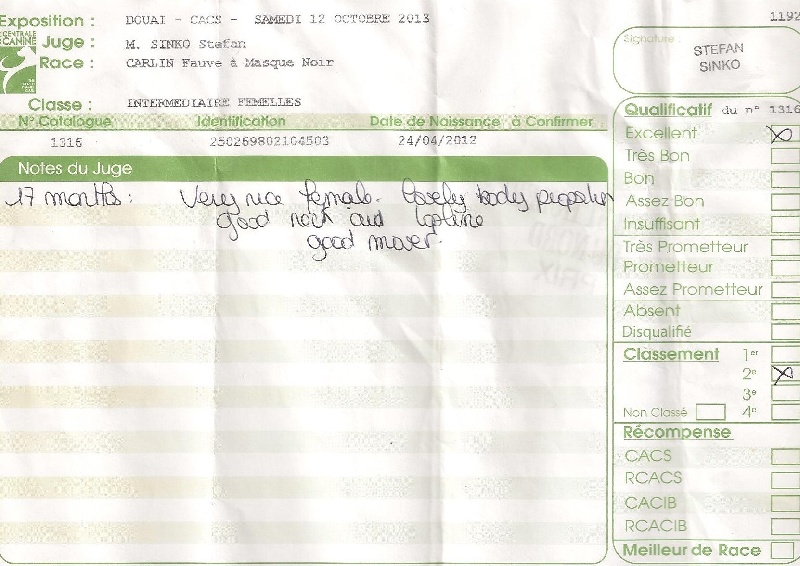 Exposition : DOUAI - CACS - SAMEDI 12 OCTOBRE 2013
1192
CENTRALE CANINE
Juge : M. SINKO Stefan
Race : CARLIN Fauve à Masque Noir
Classe : INTERMEDIAIRE FEMELLES
Signature :
STEFAN
SINKO
N° Catalogue Identification Date de Naissance à Confirmer
1316 250269802104503 24/04/2012
Notes du Juge
17 months : Very nice female. Lovely body proportion
good neck and topline
good mover.
Qualificatif du n° 1316
Excellent X
Très Bon
Bon
Assez Bon
Insuffisant
Très Prometteur
Prometteur
Assez Prometteur
Absent
Disqualifié
Classement 1er
2e X
3e
Non Classé 4e
Récompense
CACS
RCACS
CACIB
RCACIB
Meilleur de Race